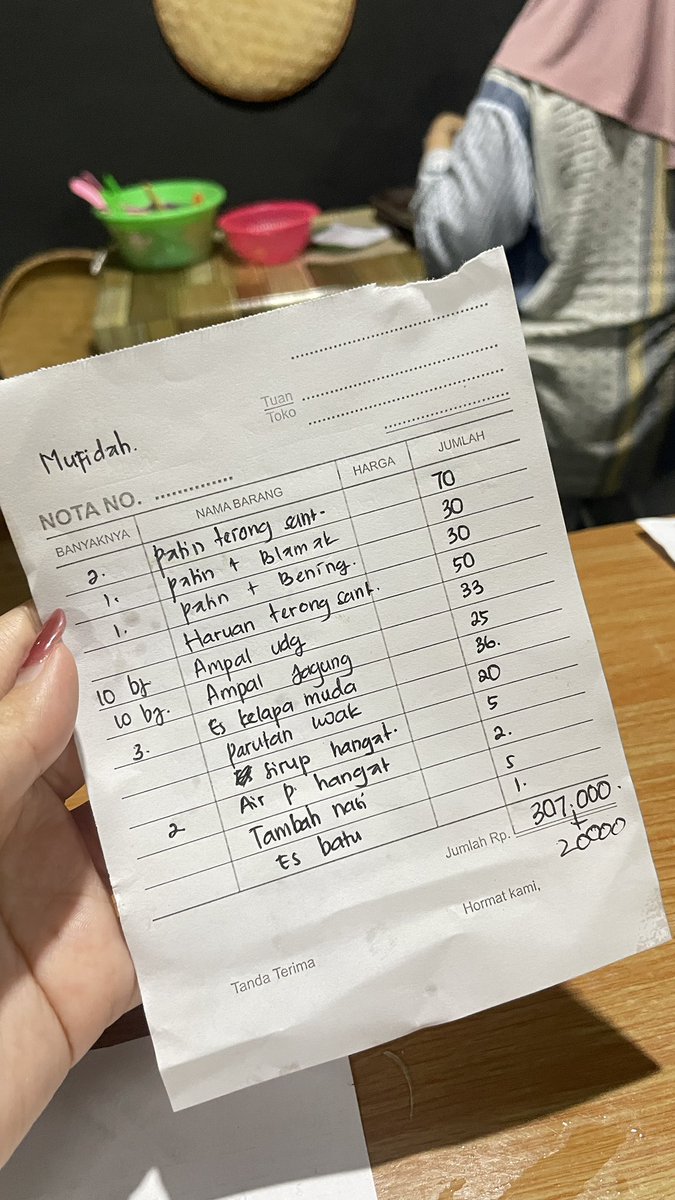 Tuan
Toko
Mufidah.
NOTA NO.
BANYAKNYA NAMA BARANG HARGA JUMLAH
2. patin terong sant- 70
1. patin + Blamak 30
1. patin + Bening. 30
Haruan terong sant. 50
10 bj Ampal udg 33
10 bj. Ampal Jagung 25
3. Es kelapa muda 36.
parutan wak 20
sirup hangat. 5
2 Air p. hangat 2.
Tambah nasi 5
Es batu 1.
Jumlah Rp. 307.000.
+
20000
Hormat kami,
Tanda Terima